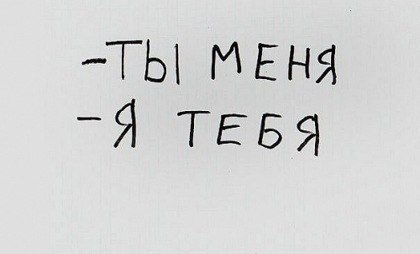 -ТЫ МЕНЯ
-Я ТЕБЯ